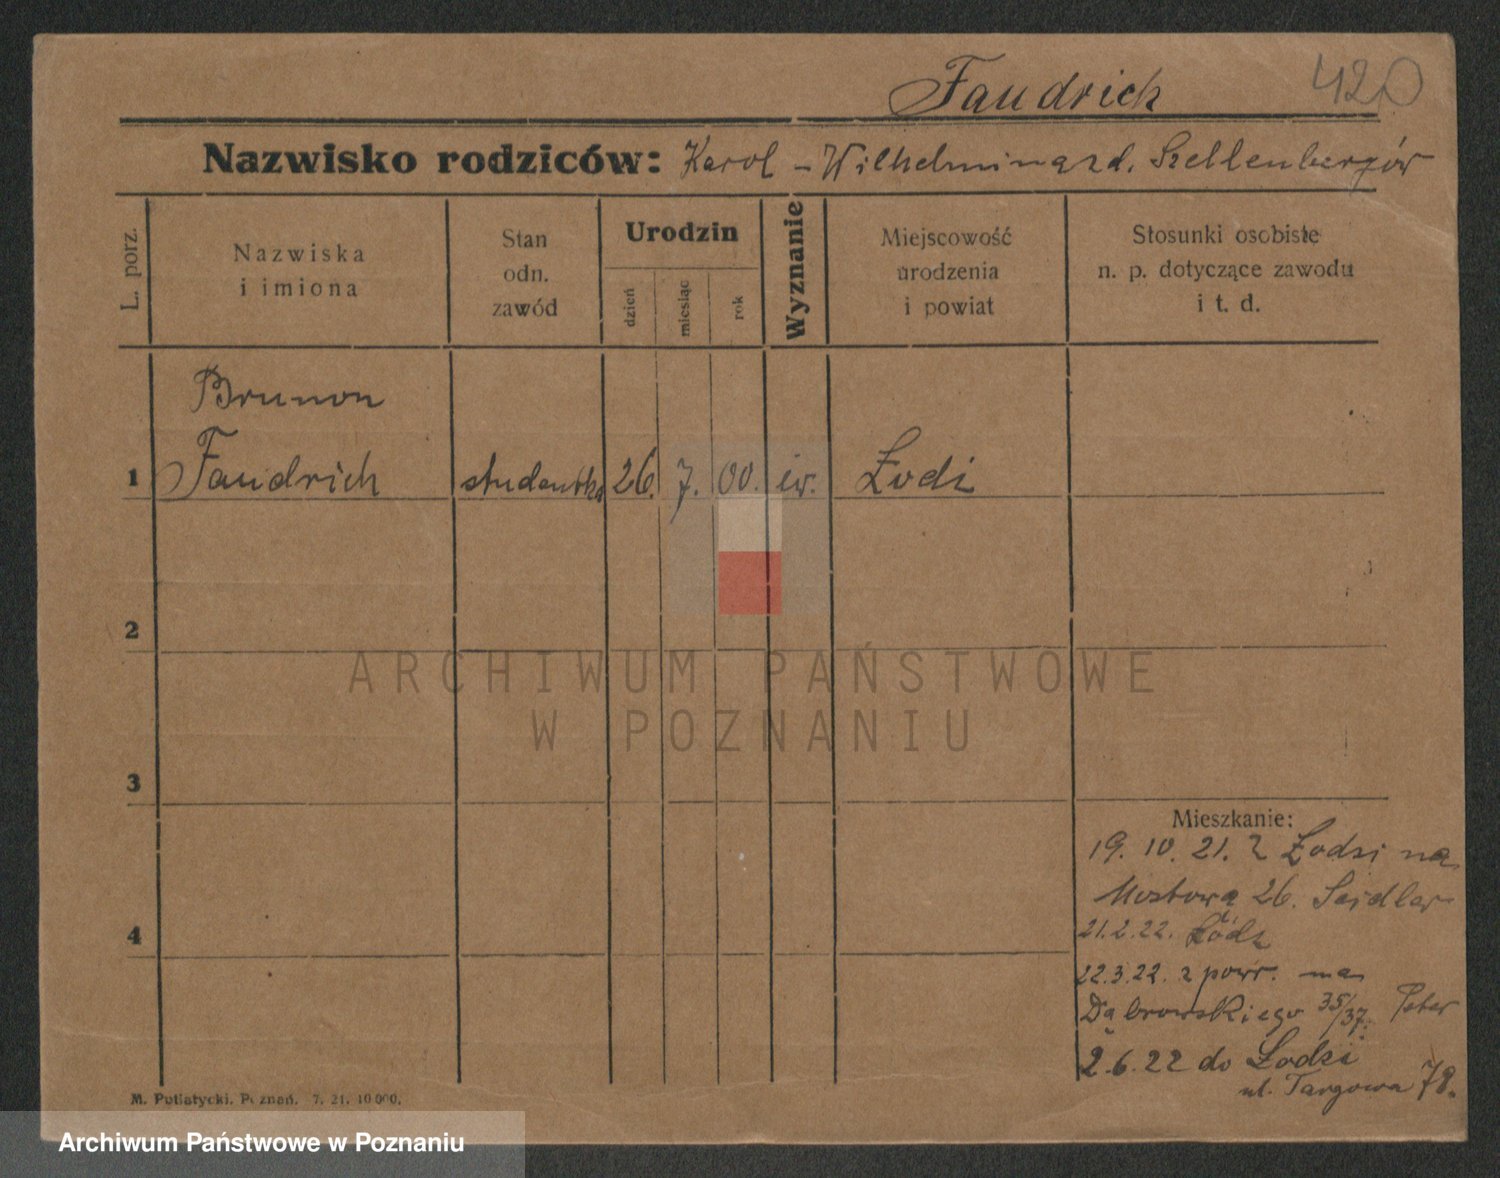 Faudrich
420
Nazwisko rodziców: Karol - Wilhelmina zd. Szellenbergów
L. porz.
Nazwiska
i imiona
Stan
odn.
zawód
Urodzin
dzień
miesiąc
rok
Wyznanie
Miejscowość
urodzenia
i powiat
Stosunki osobiste
n. p. dotyczące zawodu
i t. d.
Brunon
1 Faudrich studentka 26. 7. 00. ew. Łodź
2
3
4
ARCHIWUM PAŃSTWOWE
W POZNANIU
Mieszkanie:
19. 10. 21. z Łodzi na
Mostowa 26. Seidler
21.2.22. Łódź
22.3.22. z powr. na
Dąbrowskiego 35/37. Peter
2.6.22 do Łodzi
ul. Targowa 78.
M. Putiatycki, Poznań. 7. 21. 10 000.
Archiwum Państwowe w Poznaniu